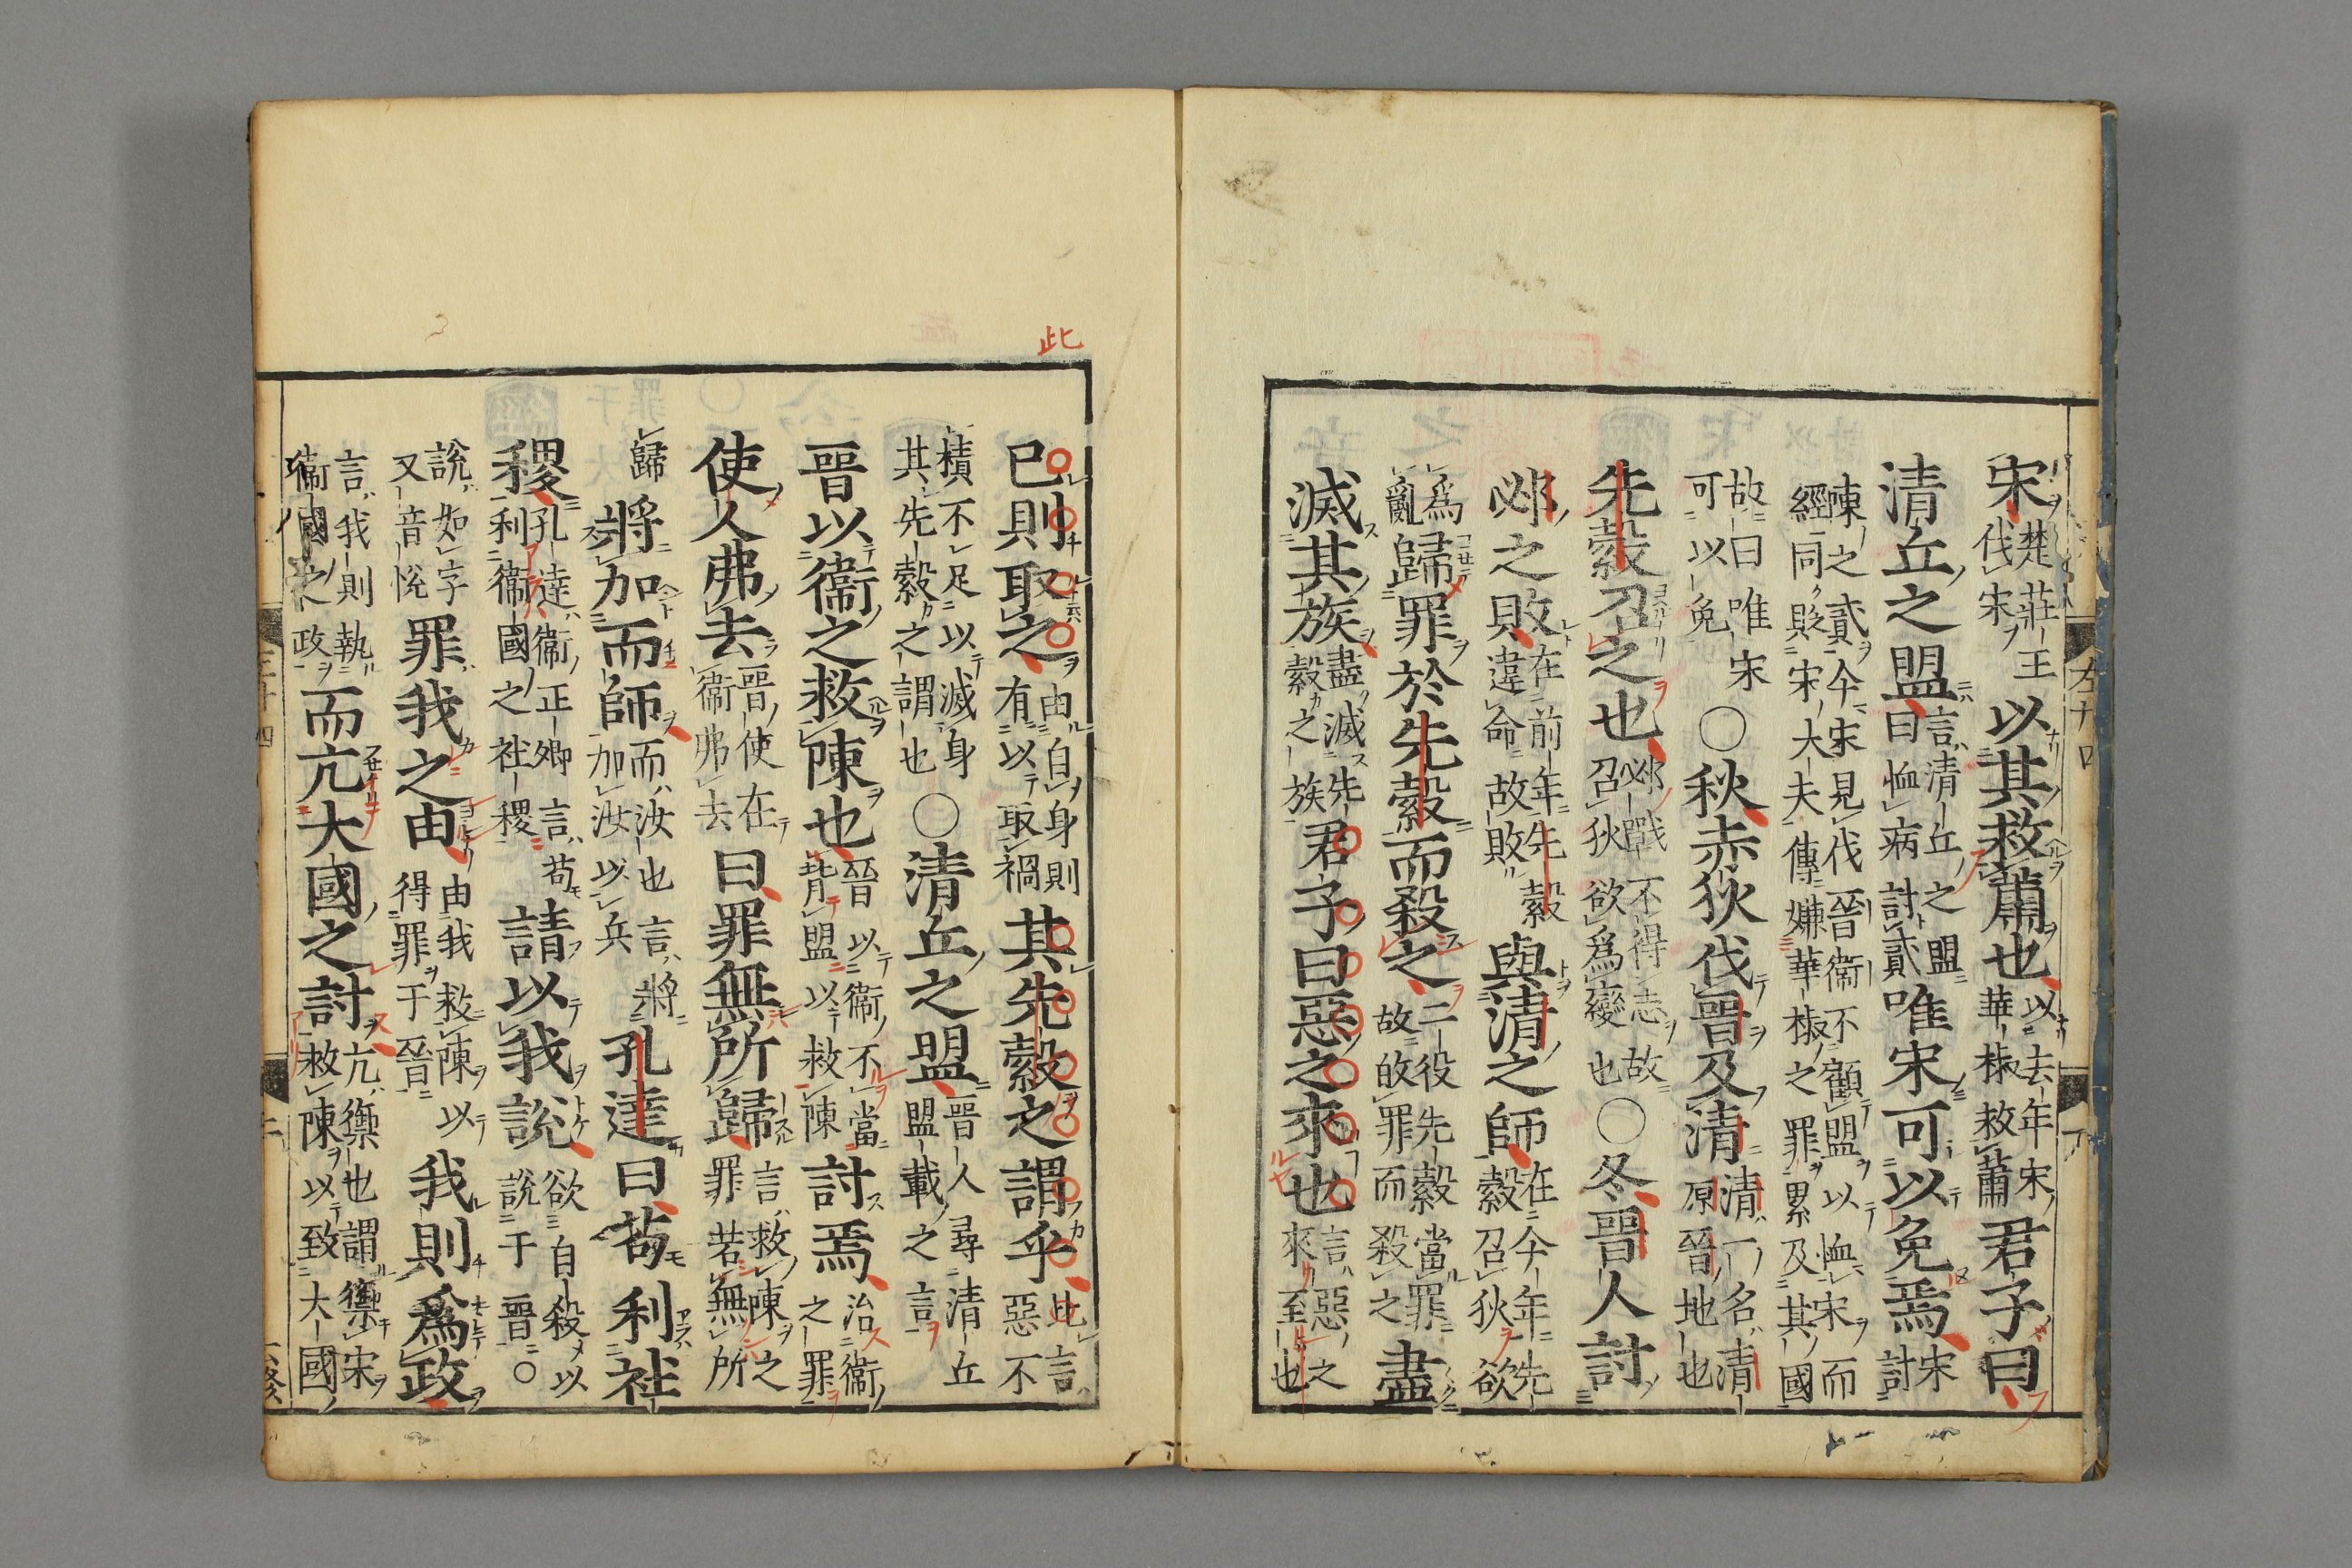 宋楚莊王伐宋以其救蕭也以去年宋華椒救蕭君子曰
清丘之盟言清丘之盟曰恤病討貳唯宋可以免焉宋討
陳之貳今宋見伐晉衞不顧盟以恤宋而經同貶宋大夫傳嫌華椒之罪累及其國
故曰唯宋可以免○秋赤狄伐晉及清清一名清原晉地也
先縠召之也邲戰不得志故召狄欲爲變也○冬晉人討
邲之敗在前年先縠違命故敗與清之師在今年先縠召狄欲
爲亂歸罪於先縠而殺之二役先縠當罪故敀罪而殺之盡
滅其族盡滅先縠之族君子曰惡之來也言惡之來至也
此
已則取之由自身則有以取禍其先縠之謂乎此言惡不
積不足以滅身其先縠之謂也○清丘之盟晉人尋清丘盟載之言
晉以衞之救陳也晉以衞不當背盟以救陳討焉治衞之罪
使人弗去晉使在衞弗去曰罪無所歸言救陳之罪若無所
歸將加而師而汝也言將加汝以兵孔達曰苟利社
稷孔達衞正卿言苟利衞國之社稷請以我說欲自殺以說于晉○
說如字又音悅罪我之由由我救陳以得罪于晉我則爲政
言我則執衞國之政而亢大國之討亢禦也謂禦宋救陳以致大國